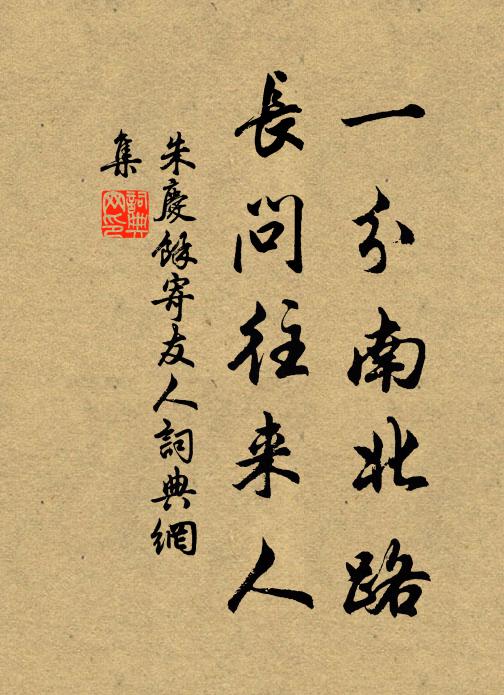 一分南北路
長問往来人
朱慶餘寄友人詞典網
集
詞典
网印